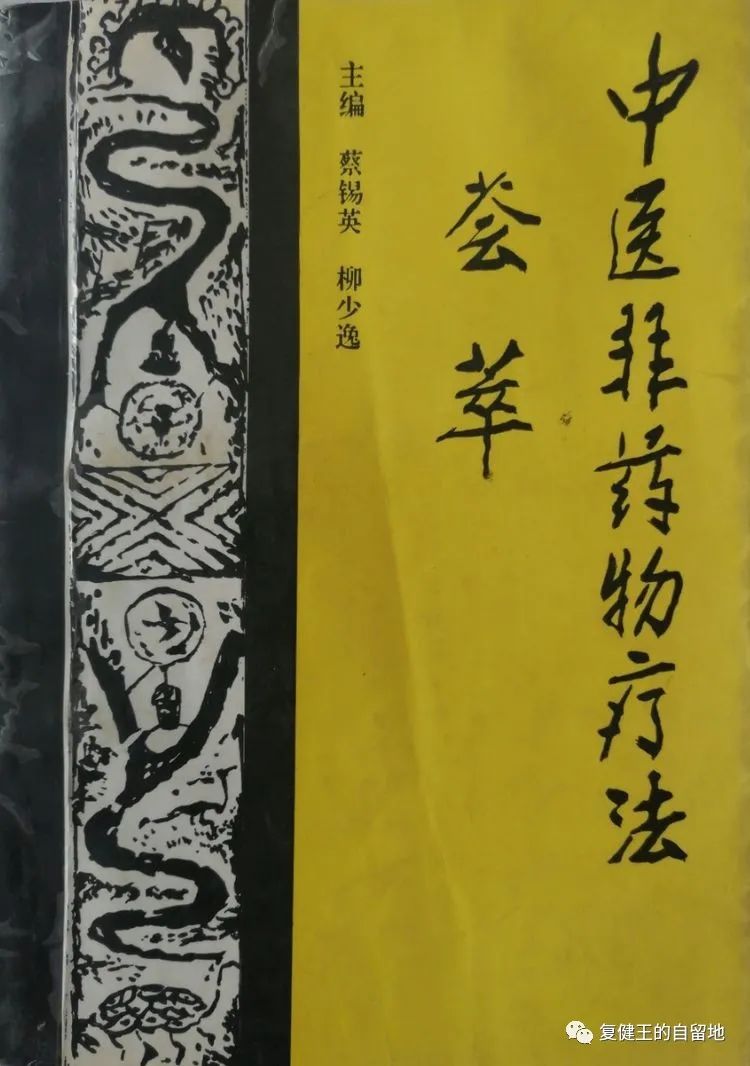 中医非药物疗法
荟萃
主编 蔡锡英 柳少逸
复健王的自留地